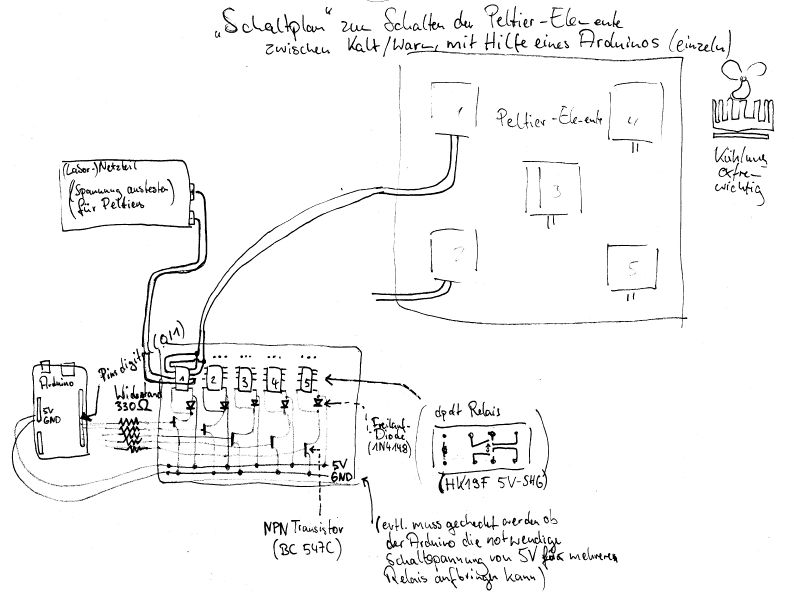 „Schaltplan" zum Schalten der Peltier-Elemente
zwischen Kalt/Warm, mit Hilfe eines Arduinos (einzeln)
1
Peltier-Elemente
4
3
2
5
Kühlung
extrem
wichtig
(Labor-)Netzteil
(Spannung austesten)
für Peltiers
Pins digital (0/1)
Arduino
5V
GND
Widerstand
330Ω
1
2
3
4
5
5V
GND
Freilauf-
Diode
(1N4148)
dpdt Relais
(HK19F 5V-SHG)
NPN Transistor
(BC 547C)
(evtl. muss gecheckt werden ob
der Arduino die notwendige
Schaltspannung von 5V für mehrere
Relais aufbringen kann)